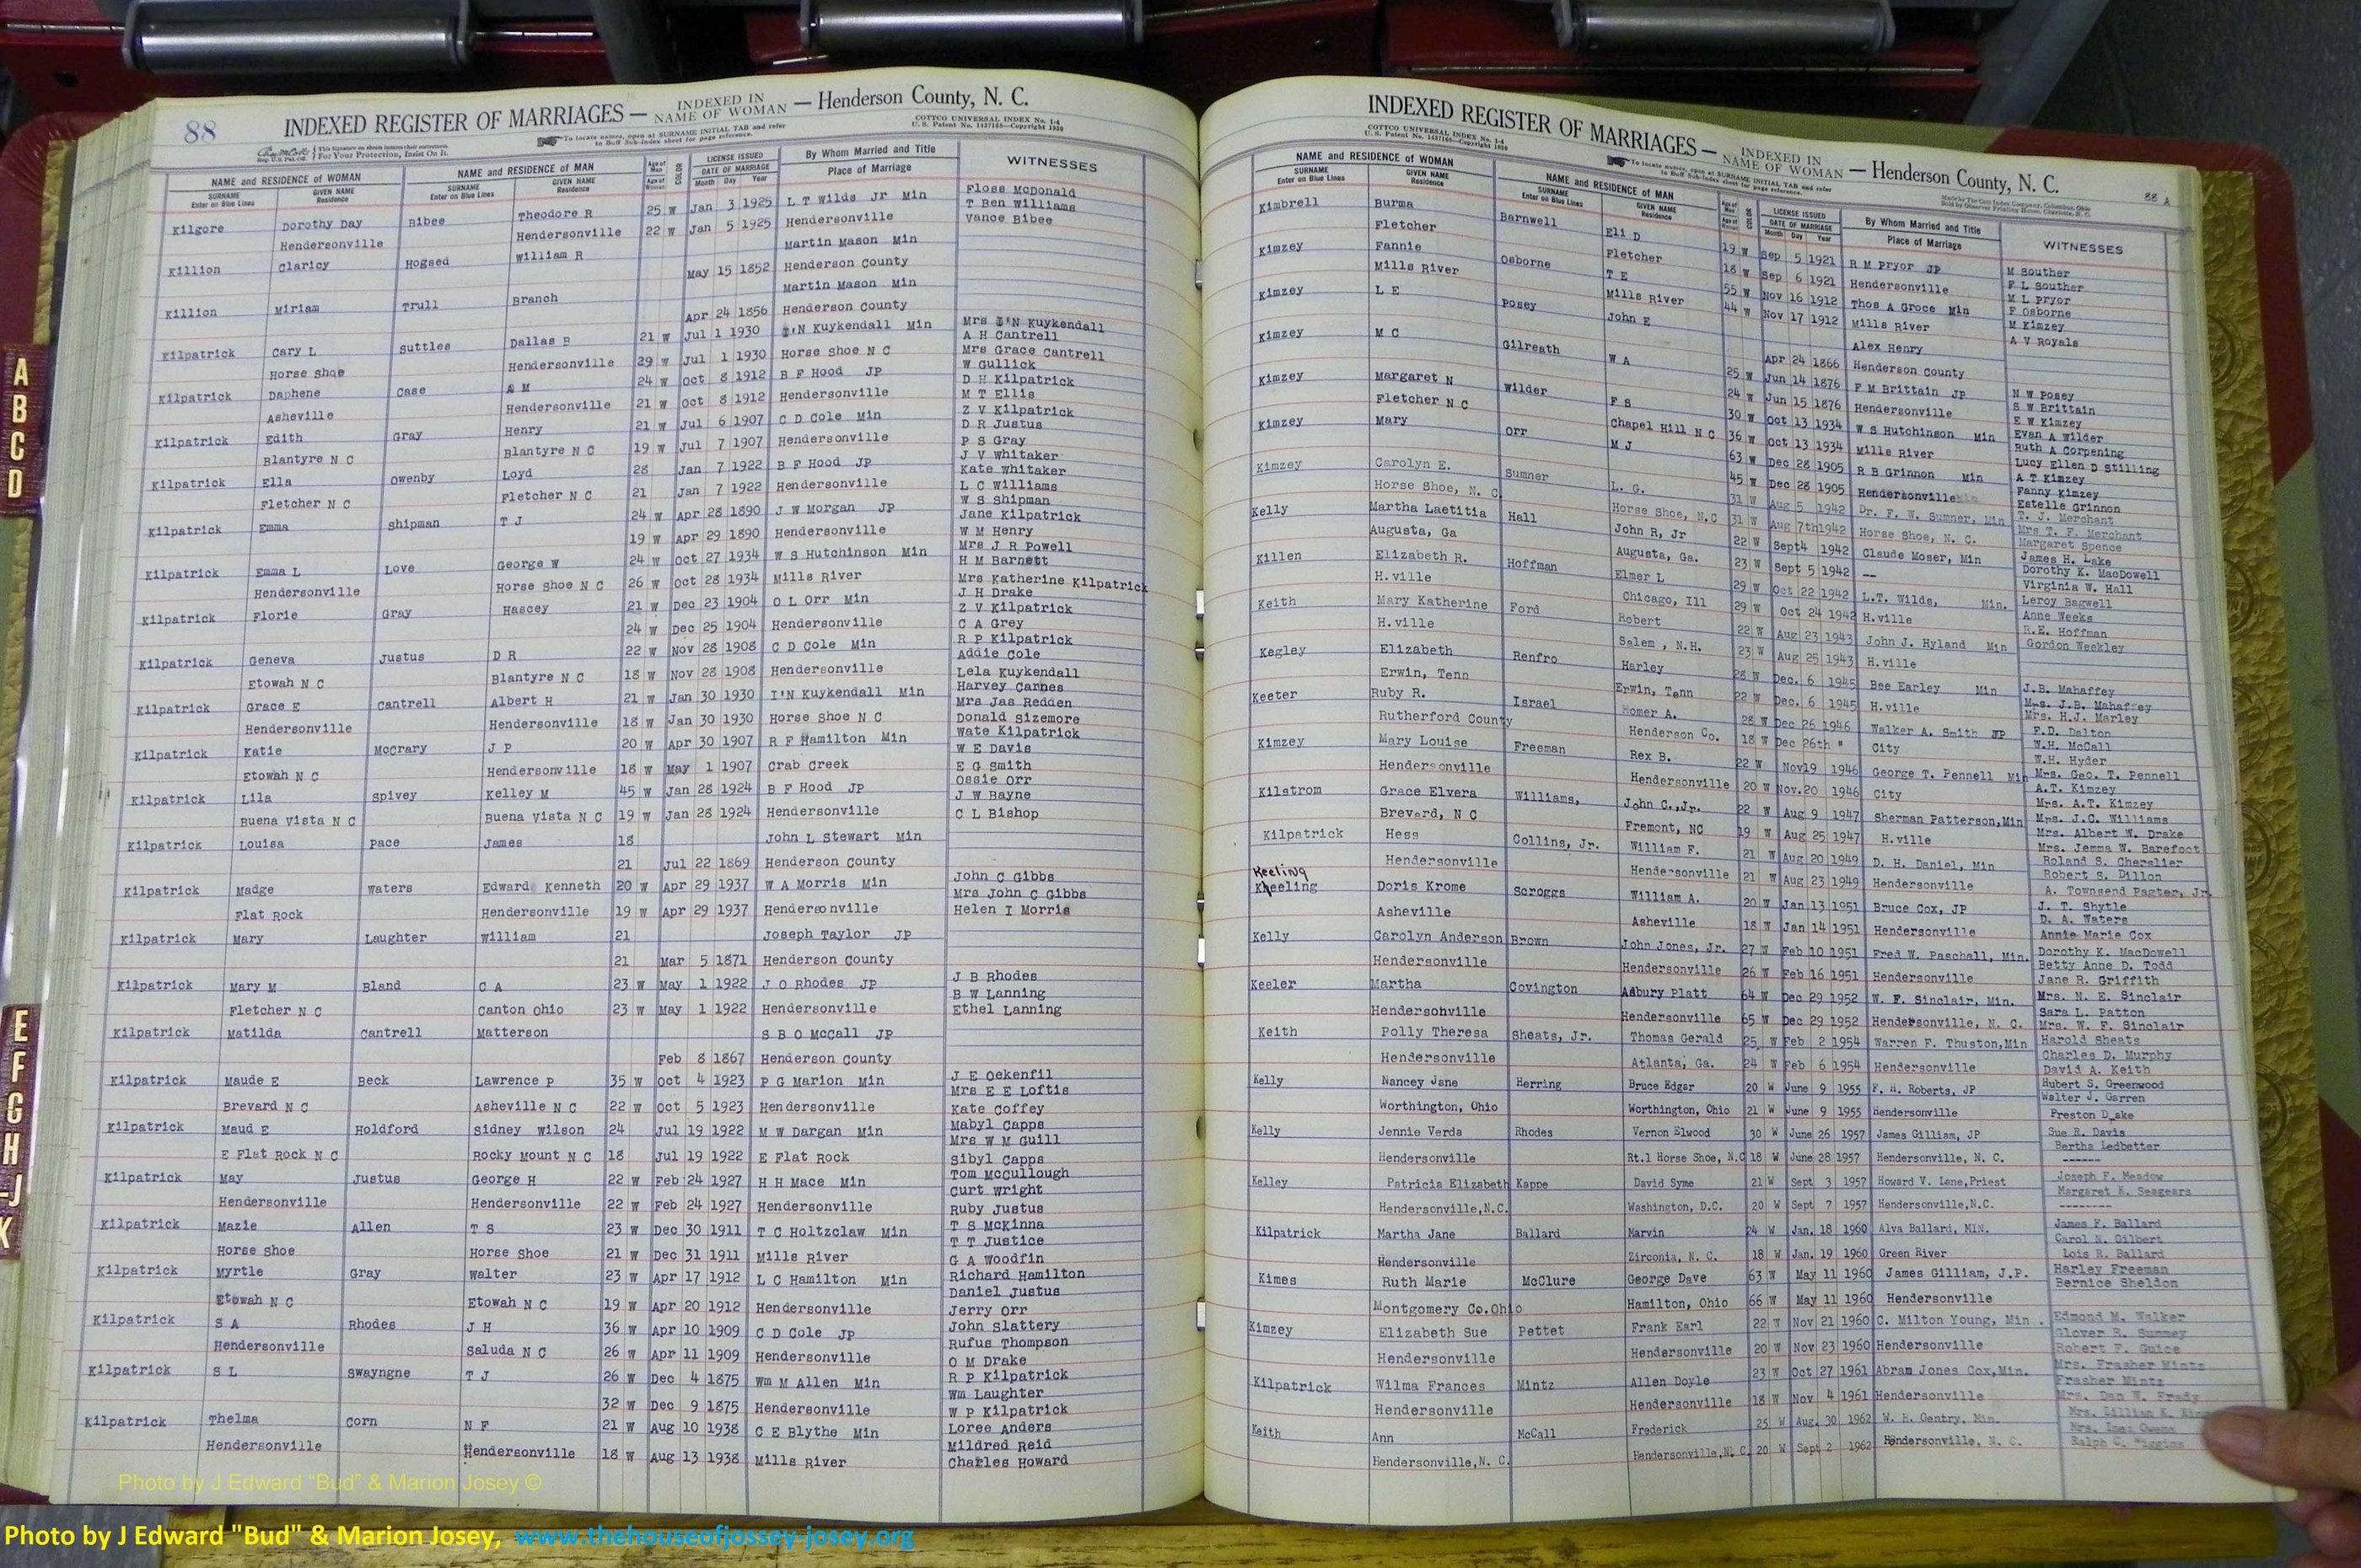 88
INDEXED REGISTER OF MARRIAGES — INDEXED IN NAME OF WOMAN — Henderson County, N. C.
To locate names, open at SURNAME INITIAL TAB and refer to Buff Sub-Index sheet for page reference.
COTTCO UNIVERSAL INDEX No. 1-4
U. S. Patent No. 1437168—Copyright 1930
For Your Protection, Insist On It.
NAME and RESIDENCE of WOMAN NAME and RESIDENCE of MAN Age of Man Age of Woman COLOR LICENSE ISSUED DATE OF MARRIAGE By Whom Married and Title Place of Marriage WITNESSES
SURNAME Enter on Blue Lines GIVEN NAME Residence SURNAME Enter on Blue Lines GIVEN NAME Residence Month Day Year
Kilgore Dorothy Day Bibee Theodore R 25 W Jan 3 1925 L T Wilds Jr Min Floss McDonald
T Ben Williams
Hendersonville Hendersonville 22 W Jan 5 1925 Hendersonville Vance Bibee
Killion Claricy Hogsed William R Martin Mason Min
May 15 1852 Henderson County
Killion Miriam Trull Branch Martin Mason Min
Apr 24 1856 Henderson County
Kilpatrick Cary L Suttles Dallas B 21 W Jul 1 1930 I'N Kuykendall Min Mrs I'N Kuykendall
A H Cantrell
Horse Shoe Hendersonville 29 W Jul 1 1930 Horse Shoe N C Mrs Grace Cantrell
Kilpatrick Daphene Case A M 24 W Oct 8 1912 B F Hood JP W Gullick
D H Kilpatrick
Asheville Hendersonville 21 W Oct 8 1912 Hendersonville M T Ellis
Kilpatrick Edith Gray Henry 21 W Jul 6 1907 C D Cole Min Z V Kilpatrick
D R Justus
Blantyre N C Blantyre N C 19 W Jul 7 1907 Hendersonville P S Gray
Kilpatrick Ella Owenby Loyd 28 Jan 7 1922 B F Hood JP J V Whitaker
Kate Whitaker
Fletcher N C Fletcher N C 21 Jan 7 1922 Hendersonville L C Williams
Kilpatrick Emma Shipman T J 24 W Apr 28 1890 J W Morgan JP W S Shipman
Jane Kilpatrick
19 W Apr 29 1890 Hendersonville W M Henry
Kilpatrick Emma L Love George W 24 W Oct 27 1934 W S Hutchinson Min Mrs J R Powell
H M Barnett
Hendersonville Horse Shoe N C 26 W Oct 28 1934 Mills River Mrs Katherine Kilpatrick
Kilpatrick Florie Gray Hascey 21 W Dec 23 1904 O L Orr Min J H Drake
Z V Kilpatrick
24 W Dec 25 1904 Hendersonville C A Grey
Kilpatrick Geneva Justus D R 22 W Nov 28 1908 C D Cole Min R P Kilpatrick
Addie Cole
Etowah N C Blantyre N C 18 W Nov 28 1908 Hendersonville Lela Kuykendall
Kilpatrick Grace E Cantrell Albert H 21 W Jan 30 1930 I'N Kuykendall Min Harvey Carnes
Mrs Jas Redden
Hendersonville Hendersonville 18 W Jan 30 1930 Horse Shoe N C Donald Sizemore
Kilpatrick Katie McCrary J P 20 W Apr 30 1907 R F Hamilton Min Wate Kilpatrick
W E Davis
Etowah N C Hendersonville 18 W May 1 1907 Crab Creek E G Smith
Kilpatrick Lila Spivey Kelley M 45 W Jan 28 1924 B F Hood JP Ossie Orr
J W Bayne
Buena Vista N C Buena Vista N C 19 W Jan 28 1924 Hendersonville C L Bishop
Kilpatrick Louisa Pace James 18 John L Stewart Min
21 Jul 22 1869 Henderson County
Kilpatrick Madge Waters Edward Kenneth 20 W Apr 29 1937 W A Morris Min John C Gibbs
Mrs John C Gibbs
Flat Rock Hendersonville 19 W Apr 29 1937 Hendersonville Helen I Morris
Kilpatrick Mary Laughter William 21 Joseph Taylor JP
21 Mar 5 1871 Henderson County
Kilpatrick Mary M Bland C A 23 W May 1 1922 J O Rhodes JP J B Rhodes
B W Lanning
Fletcher N C Canton Ohio 23 W May 1 1922 Hendersonville Ethel Lanning
Kilpatrick Matilda Cantrell Matterson S B O McCall JP
Feb 8 1867 Henderson County
Kilpatrick Maude E Beck Lawrence P 35 W Oct 4 1923 P G Marion Min J E Oekenfil
Mrs E E Loftis
Brevard N C Asheville N C 22 W Oct 5 1923 Hendersonville Kate Coffey
Kilpatrick Maud E Holdford Sidney Wilson 24 Jul 19 1922 M W Dargan Min Mabyl Capps
Mrs W M Guill
E Flat Rock N C Rocky Mount N C 18 Jul 19 1922 E Flat Rock Sibyl Capps
Kilpatrick May Justus George H 22 W Feb 24 1927 H H Mace Min Tom McCullough
Curt Wright
Hendersonville Hendersonville 22 W Feb 24 1927 Hendersonville Ruby Justus
Kilpatrick Mazie Allen T S 23 W Dec 30 1911 T C Holtzclaw Min T S McKinna
T T Justice
Horse Shoe Horse Shoe 21 W Dec 31 1911 Mills River G A Woodfin
Kilpatrick Myrtle Gray Walter 23 W Apr 17 1912 L C Hamilton Min Richard Hamilton
Daniel Justus
Etowah N C Etowah N C 19 W Apr 20 1912 Hendersonville Jerry Orr
Kilpatrick S A Rhodes J H 36 W Apr 10 1909 C D Cole JP John Slattery
Rufus Thompson
Hendersonville Saluda N C 26 W Apr 11 1909 Hendersonville O M Drake
Kilpatrick S L Swayngne T J 26 W Dec 4 1875 Wm M Allen Min R P Kilpatrick
Wm Laughter
32 W Dec 9 1875 Hendersonville W P Kilpatrick
Kilpatrick Thelma Corn N F 21 W Aug 10 1938 C E Blythe Min Loree Anders
Mildred Reid
Hendersonville Hendersonville 18 W Aug 13 1938 Mills River Charles Howard
INDEXED REGISTER OF MARRIAGES — INDEXED IN NAME OF WOMAN — Henderson County, N. C.
COTTCO UNIVERSAL INDEX No. 1-4
U. S. Patent No. 1437168—Copyright 1930
To locate names, open at SURNAME INITIAL TAB and refer to Buff Sub-Index sheet for page reference.
88 A
NAME and RESIDENCE of WOMAN NAME and RESIDENCE of MAN Age of Man Age of Woman COLOR LICENSE ISSUED DATE OF MARRIAGE By Whom Married and Title Place of Marriage WITNESSES
SURNAME Enter on Blue Lines GIVEN NAME Residence SURNAME Enter on Blue Lines GIVEN NAME Residence Month Day Year
Kimbrell Burma Barnwell Eli D 19 W Sep 5 1921 R M Pryor JP M Souther
F L Souther
Fletcher Fletcher 18 W Sep 6 1921 Hendersonville M L Pryor
Kimzey Fannie Osborne T E 55 W Nov 16 1912 Thos A Groce Min F Osborne
M Kimzey
Mills River Mills River 44 W Nov 17 1912 Mills River A V Royals
Kimzey L E Posey John E Alex Henry
Apr 24 1866 Henderson County
Kimzey M C Gilreath W A 25 W Jun 14 1876 F M Brittain JP N W Posey
S W Brittain
24 W Jun 15 1876 Hendersonville E W Kimzey
Kimzey Margaret N Wilder F S 30 W Oct 13 1934 W S Hutchinson Min Evan A Wilder
Ruth A Corpening
Fletcher N C Chapel Hill N C 36 W Oct 13 1934 Mills River Lucy Ellen D Stilling
Kimzey Mary Orr M J 63 W Dec 28 1905 R B Grinnon Min A T Kimzey
Fanny Kimzey
45 W Dec 28 1905 Hendersonville Estelle Grinnon
Kimzey Carolyn E. Sumner L. G. 31 W Aug 5 1942 Dr. F. W. Sumner, Min T. J. Merchant
Mrs T. F. Merchant
Horse Shoe, N. C. Horse Shoe, N.C 31 W Aug 7th 1942 Horse Shoe, N. C. Margaret Spence
Kelly Martha Laetitia Hall John R, Jr 22 W Sept4 1942 Claude Moser, Min James H. Lake
Dorothy K. MacDowell
Augusta, Ga Augusta, Ga. 23 W Sept 5 1942 -- Virginia W. Hall
Killen Elizabeth R. Hoffman Elmer L 29 W Oct 22 1942 L.T. Wilds, Min. Leroy Bagwell
Anne Weeks
H.ville Chicago, Ill 29 W Oct 24 1942 H.ville R.E. Hoffman
Keith Mary Katherine Ford Robert 22 W Aug 23 1943 John J. Hyland Min Gordon Weekley
H.ville Salem , N.H. 23 W Aug 25 1943 H.ville
Kegley Elizabeth Renfro Harley 28 W Dec. 6 1945 Bee Earley Min J.B. Mahaffey
Mrs. J.B. Mahaffey
Erwin, Tenn Erwin, Tenn 22 W Dec. 6 1945 H.ville Mrs. H.J. Marley
Keeter Ruby R. Israel Homer A. 28 W Dec 26 1946 Walker A. Smith JP F.D. Dalton
W.H. McCall
Rutherford County Henderson Co. 18 W Dec 26th " City W.H. Hyder
Kimzey Mary Louise Freeman Rex B. 22 W Nov19 1946 George T. Pennell Min Mrs. Geo. T. Pennell
A.T. Kimzey
Hendersonville Hendersonville 20 W Nov.20 1946 City Mrs. A.T. Kimzey
Kilstrom Grace Elvera Williams, John C.,Jr. 22 W Aug 9 1947 Sherman Patterson,Min Mrs. J.C. Williams
Mrs. Albert W. Drake
Brevard, N C Fremont, NC 19 W Aug 25 1947 H.ville Mrs. Jemma W. Barefoot
Kilpatrick Hess Collins, Jr. William F. 21 W Aug 20 1949 D. H. Daniel, Min Roland S. Cheralier
Robert S. Dillon
Hendersonville Hendersonville 21 W Aug 23 1949 Hendersonville A. Townsend Pagter, Jr.
Keeling
Kheeling Doris Krome Scroggs William A. 20 W Jan 13 1951 Bruce Cox, JP J. T. Shytle
D. A. Waters
Asheville Asheville 18 W Jan 14 1951 Hendersonville Annie Marie Cox
Kelly Carolyn Anderson Brown John Jones, Jr. 27 W Feb 10 1951 Fred W. Paschall, Min. Dorothy K. MacDowell
Betty Anne D. Todd
Hendersonville Hendersonville 26 W Feb 16 1951 Hendersonville Jane R. Griffith
Keeler Martha Covington Asbury Platt 64 W Dec 29 1952 W. F. Sinclair, Min. Mrs. N. E. Sinclair
Sara L. Patton
Hendersonville Hendersonville 65 W Dec 29 1952 Hendersonville, N. C. Mrs. W. F. Sinclair
Keith Polly Theresa Sheats, Jr. Thomas Gerald 25, W Feb 2 1954 Warren F. Thuston,Min Harold Sheats
Charles D. Murphy
Hendersonville Atlanta, Ga. 24 W Feb 6 1954 Hendersonville David A. Keith
Kelly Nancey Jane Herring Bruce Edgar 20 W June 9 1955 F. H. Roberts, JP Hubert S. Greenwood
Walter J. Garren
Worthington, Ohio Worthington, Ohio 21 W June 9 1955 Hendersonville Preston Drake
Kelly Jennie Verda Rhodes Vernon Elwood 30 W June 26 1957 James Gilliam, JP Sue R. Davis
Bertha Ledbetter
Hendersonville Rt.1 Horse Shoe, N.C 18 W June 28 1957 Hendersonville, N. C. ------
Kelley Patricia Elizabeth Kappe David Syme 21 W Sept 3 1957 Howard V. Lane,Priest Joseph F. Meadow
Margaret K. Seagears
Hendersonville,N.C. Washington, D.C. 20 W Sept 7 1957 Hendersonville,N.C. --------
Kilpatrick Martha Jane Ballard Marvin 24 W Jan. 18 1960 Alva Ballard, MIN. James F. Ballard
Carol N. Gilbert
Hendersonville Zirconia, N. C. 18 W Jan. 19 1960 Green River Lois R. Ballard
Kimes Ruth Marie McClure George Dave 63 W May 11 1960 James Gilliam, J.P. Harley Freeman
Bernice Sheldon
Montgomery Co.Ohio Hamilton, Ohio 66 W May 11 1960 Hendersonville
Kimzey Elizabeth Sue Pettet Frank Earl 22 W Nov 21 1960 C. Milton Young, Min . Edmond M. Walker
Glover R. Summey
Hendersonville Hendersonville 20 W Nov 23 1960 Hendersonville Robert F. Guice
Kilpatrick Wilma Frances Mintz Allen Doyle 23 W Oct 27 1961 Abram Jones Cox,Min. Mrs. Frasher Mintz
Frasher Mintz
Hendersonville Hendersonville 18 W Nov 4 1961 Hendersonville Mrs. Dan W. Frady
Keith Ann McCall Frederick 25 W Aug. 30 1962 W. H. Gentry, Min. Mrs. Lillian K.
Mrs. Inez Owens
Hendersonville,N. C. Hendersonville,N. C. 20 W Sept 2 1962 Hendersonville, N. C. Ralph C.
A
B
C
D
E
F
G
H
I-J
K
Photo by J Edward "Bud" & Marion Josey ©
Photo by J Edward "Bud" & Marion Josey, www.thehouseofjossey-josey.org